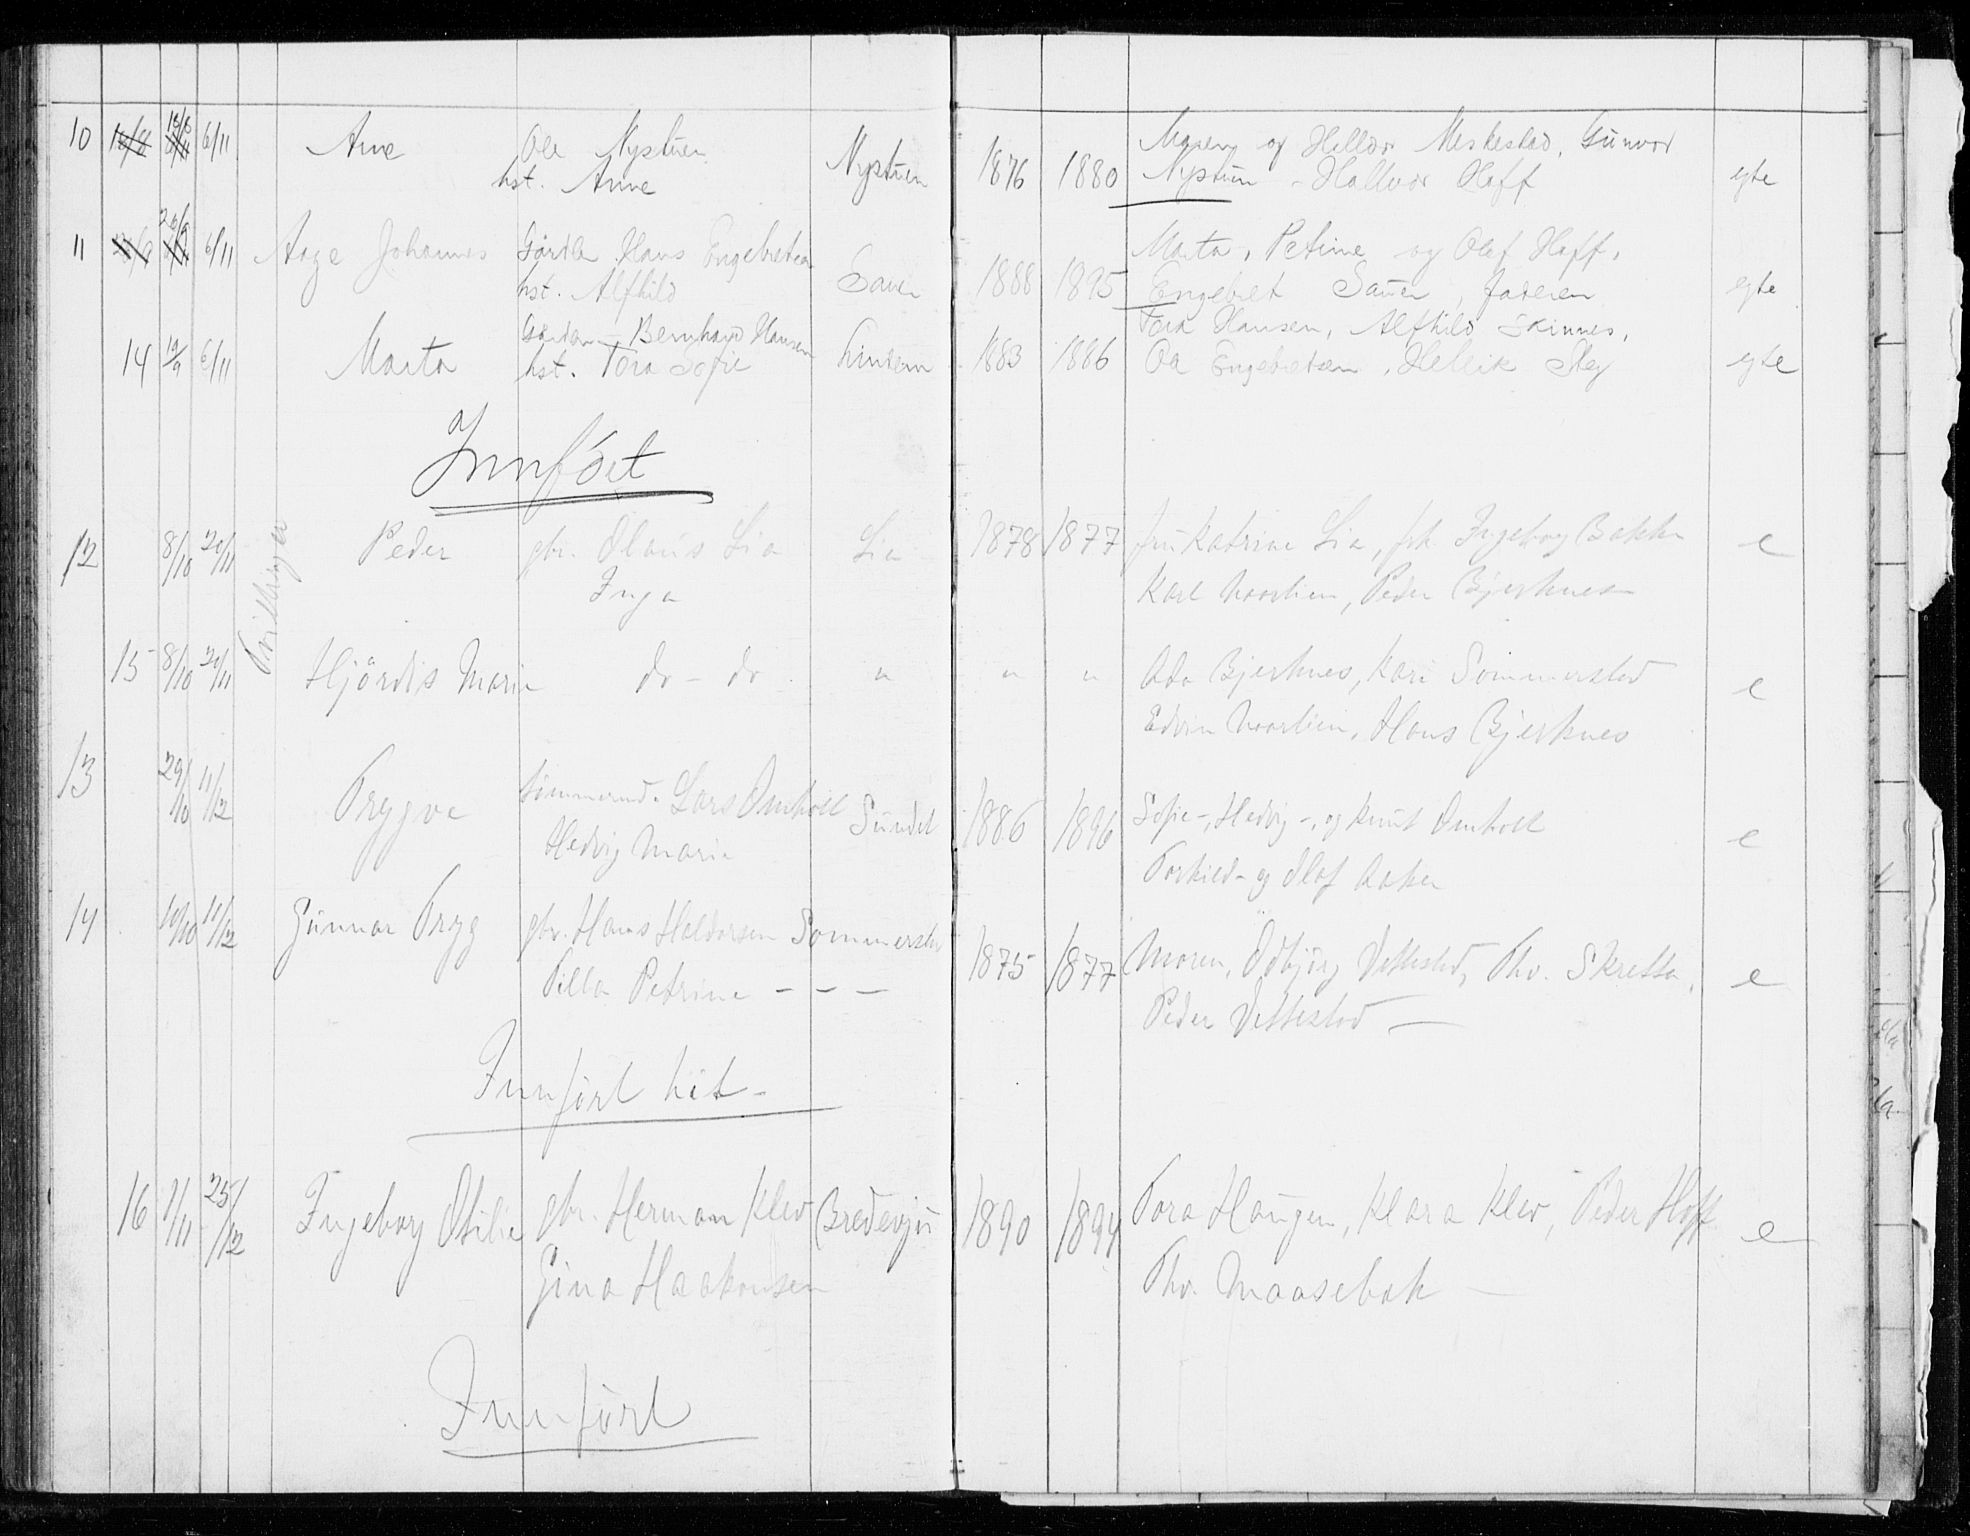 10 16/8 18/8 6/11 Arne Ola Nystuen Nystuen 1876 1880 Maren og Halldor Meskestad, Gunvor
hst. Anne Nystuen - Hallvor Hoff egte
11 26/9 6/11 Aage Johannes Gårdbr. Hans Engebretsen Sauer 1888 1895 Marta, Petrine og Olaf Hoff,
hst. Alfhild Engebret Sauer, faderen egte
14 19/9 6/11 Marta Bernhard Hansen 1883 1886 Tora Hansen, Alfhild Skinnes,
hst. Tora Sofie Ola Engebretsen, Hellik egte
Innført
12 8/10 20/11 Peder gbr. Olaus Lia Lia 1878 1877 fru Katrine Lia, frk. Ingeborg Bakke e
Inga Karl Moorlien, Peder Bjerknes
Tvillinger
15 8/10 20/11 Hjørdis Marie do - do " " " Ada Bjerknes, Kari Sommerstad e
Edvin Moorlien, Hans Bjerknes
13 29/10 11/12 Trygve tømmermd. Lars Omholt Sundet 1886 1896 Sofie-, Hedvig-, og Knut Omholt e
Hedvig Marie Torkild- og Olaf Aaker
14 10/10 11/12 Gunnar Tryg gbr. Hans Haldorsen Sommerstad 1875 1877 Moren, Odbjørg Vettestad, Thv. Skretta, e
Tilla Petrine - - - Peder Vettestad -
Innført hit -
16 1/11 25/12 Ingeborg Otilie gbr. Herman Klev Bredesju 1890 1894 Tora Haugen, Klara Klev, Peder Hoff e
Gina Haakonsen Thv. Maasebak -
Innført